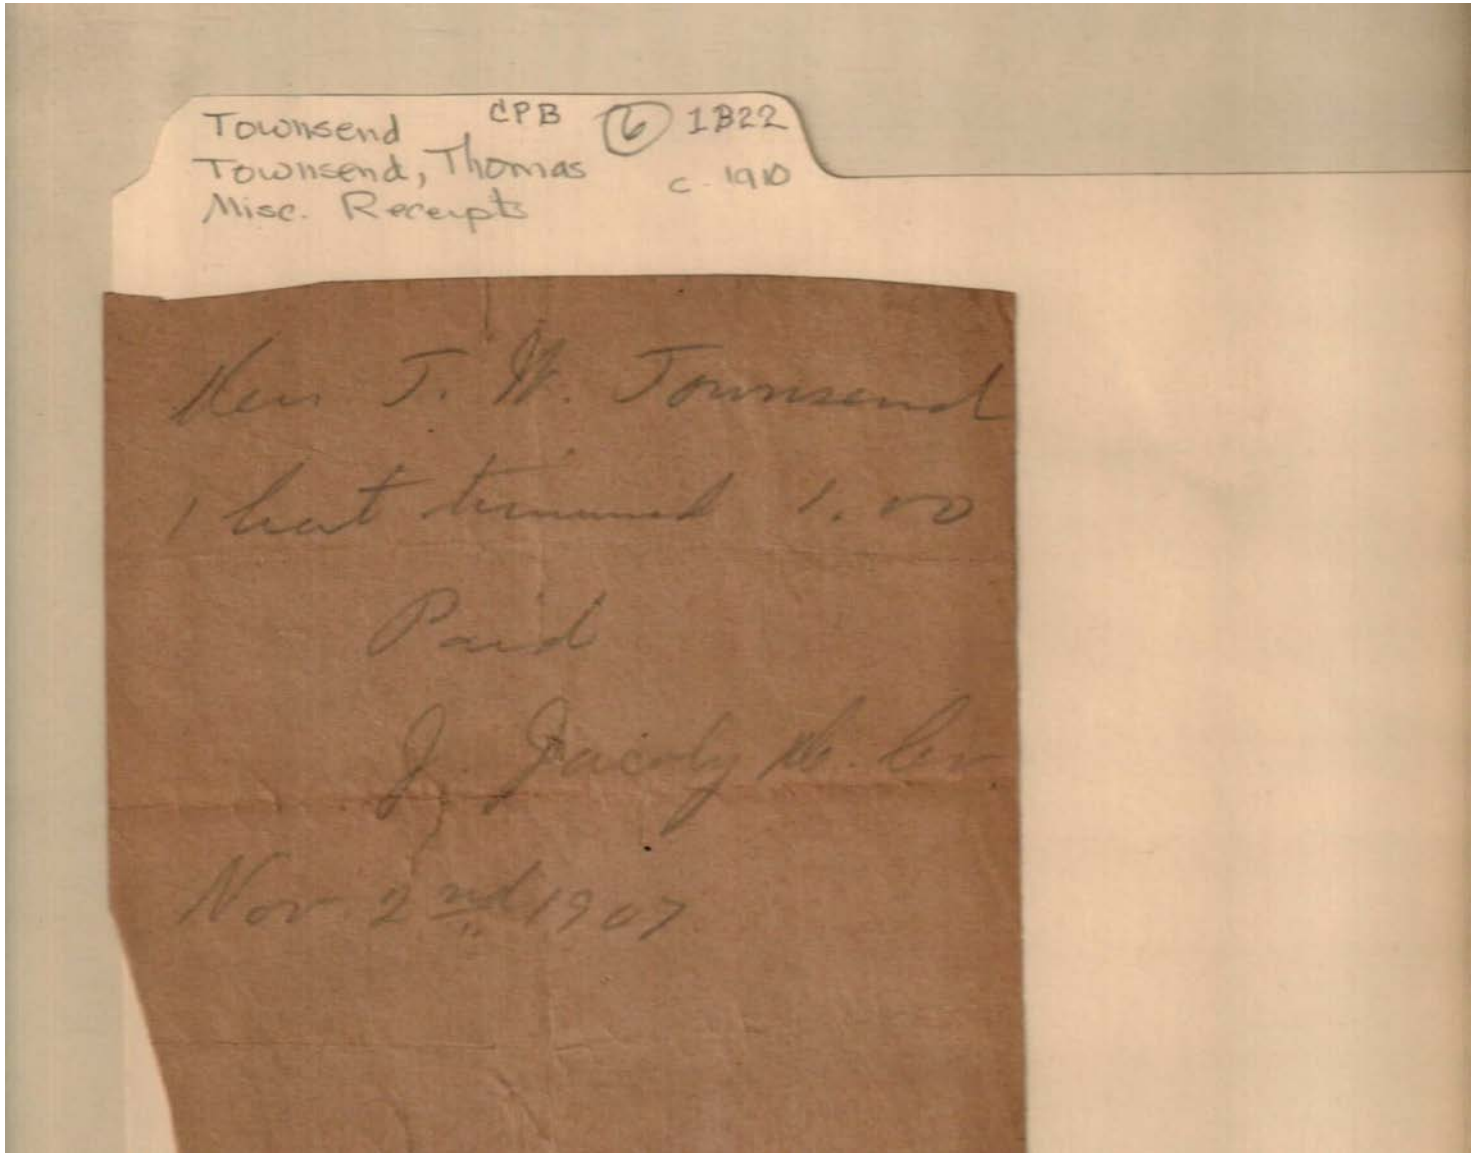 Townsend CPB 6 1B22
Townsend, Thomas c. 1910
Misc. Receipts
T. W. Townsend
1 hat trimmed 1.00
Paid
J. Jacoby
Nov 2nd 1907